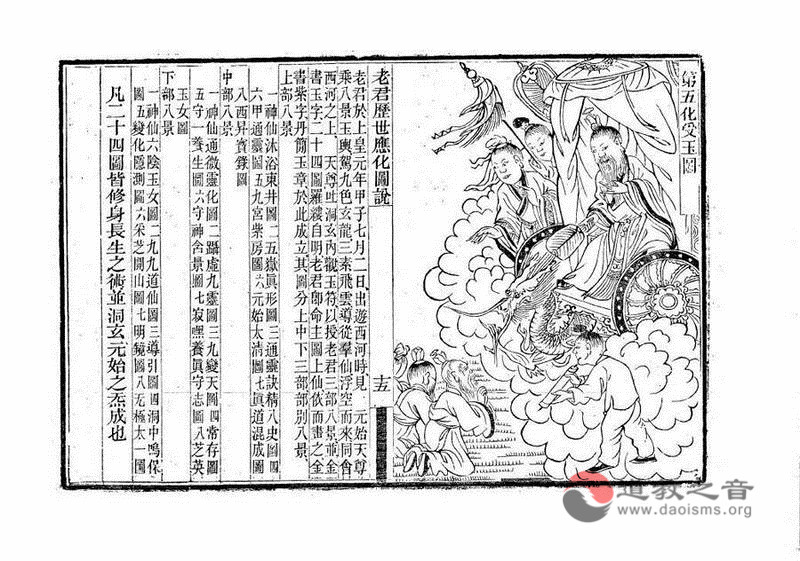 第五化受玉圖
十五
老君歷世應化圖說
老君於上皇元年甲子七月二日出遊西河時見 元始天尊
乘八景玉輿駕九色玄龍三素飛雲導從羣仙浮空而來同會
西河之上 天尊吐洞玄內觀玉符以授老君三部八景並金
書玉字二十四圖羅縷自明老君即命主圖上仙依而畫之金
書紫字丹簡玉章於此成立其圖分上中下三部部別八景
上部八景
一神仙沐浴東井圖二五嶽眞形圖三通靈訣精八史圖四
六甲通靈圖五九宮紫房圖六元始太清圖七眞道混成圖
八西昇寶籙圖
中部八景
一神仙通微靈化圖二躡虛九靈圖三九變天圖四常存圖
五守一養生圖六守神含景圖七寂嘿養眞守志圖八芝英
玉女圖
下部八景
一神仙六陰玉女圖二九九道仙圖三導引圖四洞中鳴保
圖五變化隱測圖六采芝開山圖七明鏡圖八无極太一圖
凡二十四圖皆修身長生之術並洞玄元始之炁成也
道教之音
www.daoisms.org